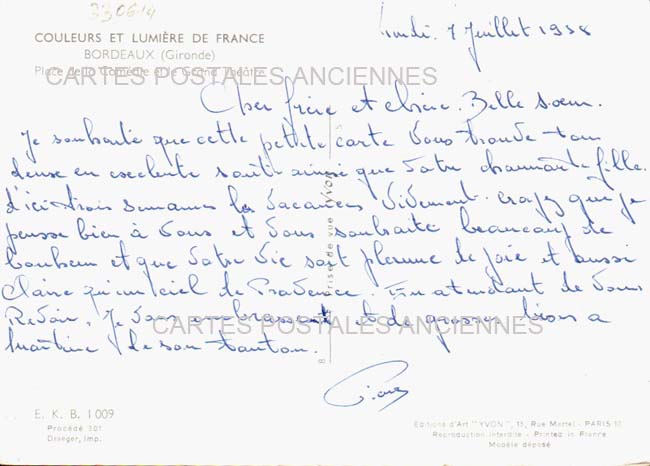 330614
lundi 7 juillet 1958
COULEURS ET LUMIÈRE DE FRANCE
BORDEAUX (Gironde)
Place de la Comédie et le Grand Théâtre
CARTES POSTALES ANCIENNES
Cher frère et chère Belle sœur.
Je souhaite que cette petite carte vous trouve tous
deux en excelente santé ainsi que votre charmante fille.
d'ici trois semaines les vacances vivement. croyez que je
pense bien à vous et vous souhaite beaucoup de
bonheur et que votre vie soit pleine de joie et aussi
claire qu'un ciel de Provence. En attendant de vous
Revoir, Je vous embrassent et de grosses bises a
martine de son tonton.
CARTES POSTALES ANCIENNES
prise de vue YVON
8
E. K. B. 1009
Procédé 301
Draeger, Imp.
Editions d'Art "YVON", 15, Rue Martel - PARIS 10
Reproduction interdite - Printed in France
Modèle déposé